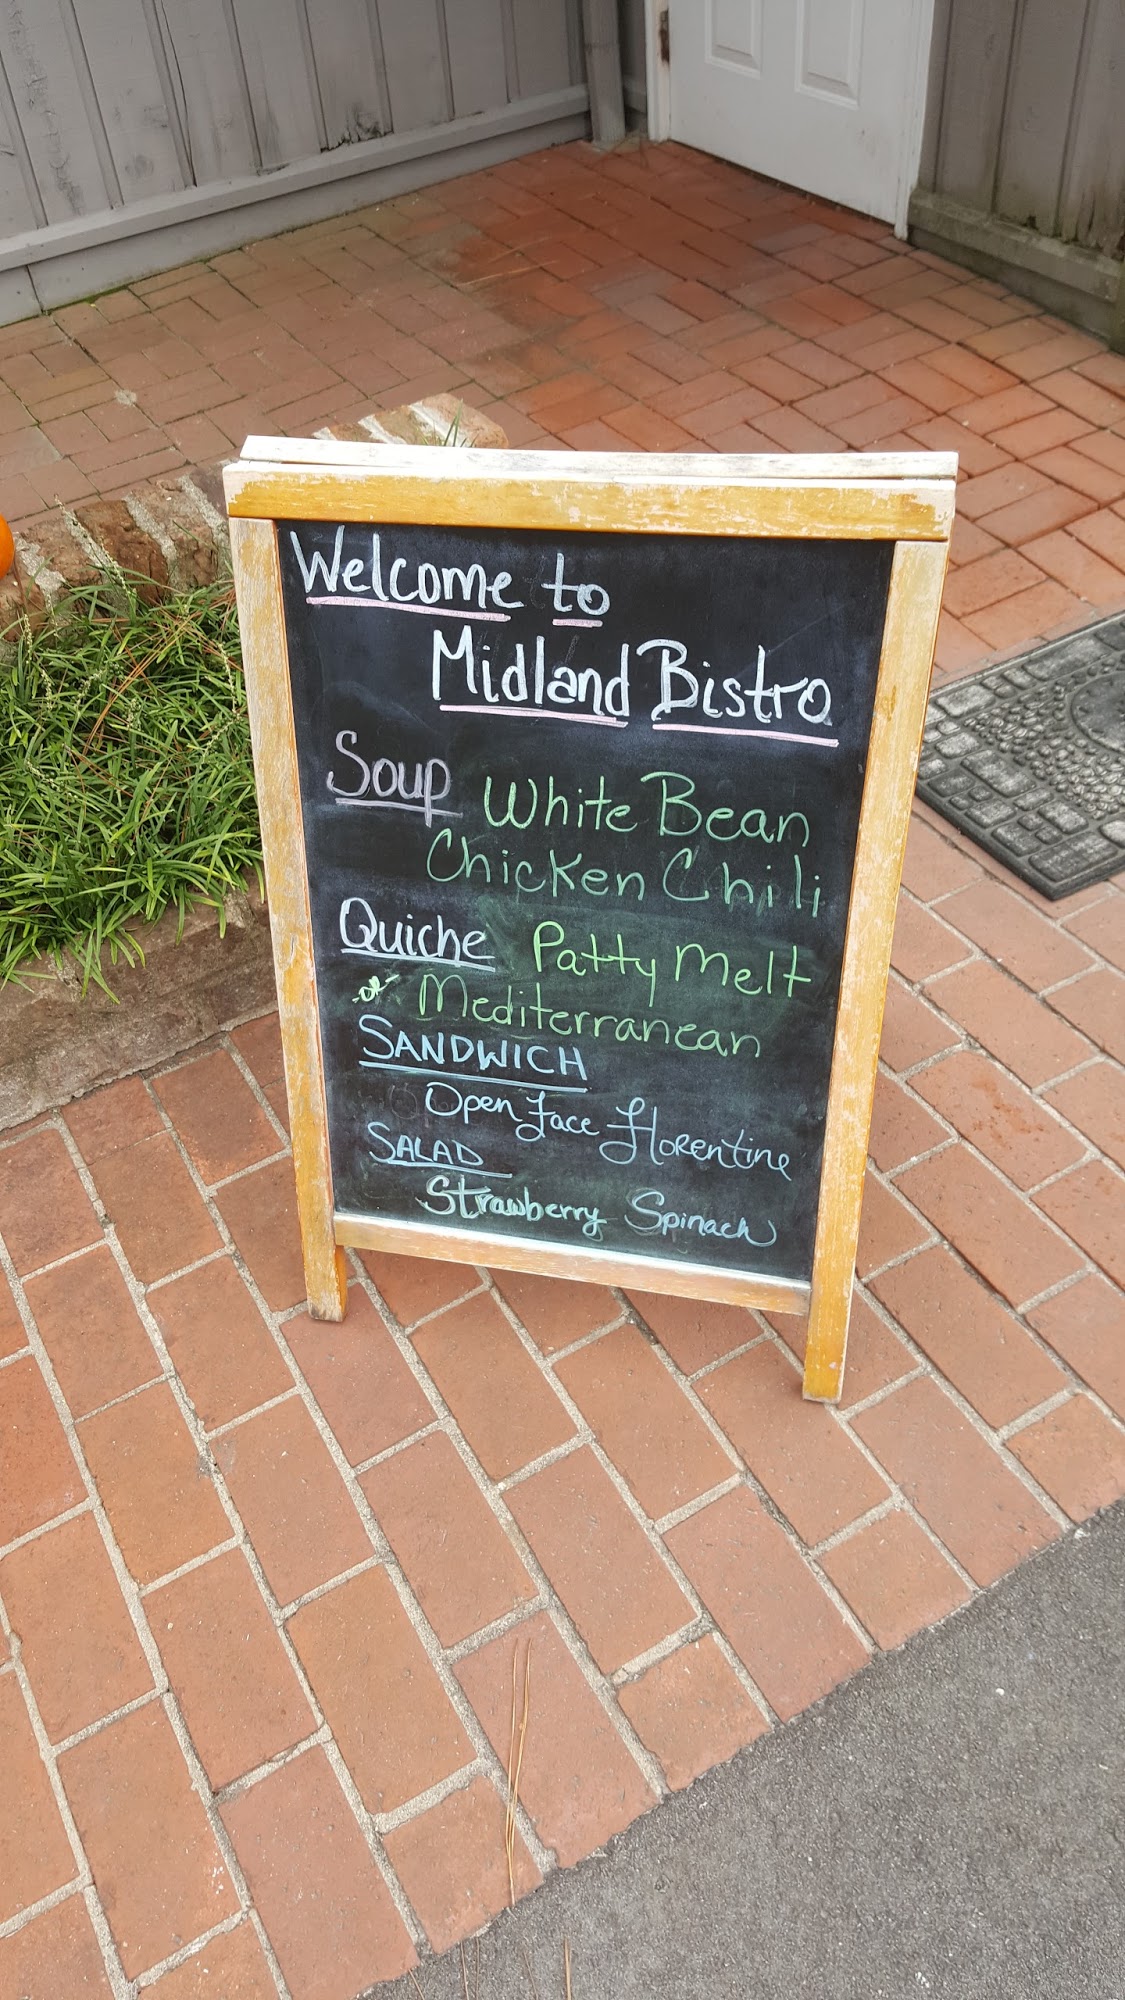 Welcome to
Midland Bistro
Soup White Bean
Chicken Chili
Quiche Patty Melt
-or- Mediterranean
SANDWICH
Open Face Florentine
SALAD
Strawberry Spinach